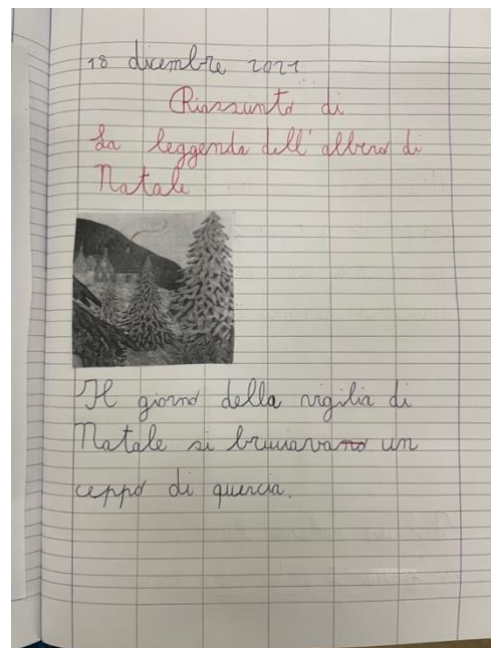 18 dicembre 2021
Riassunto di
La leggenda dell'albero di
Natale
Il giorno della vigilia di
Natale si bruciava un
ceppo di quercia.